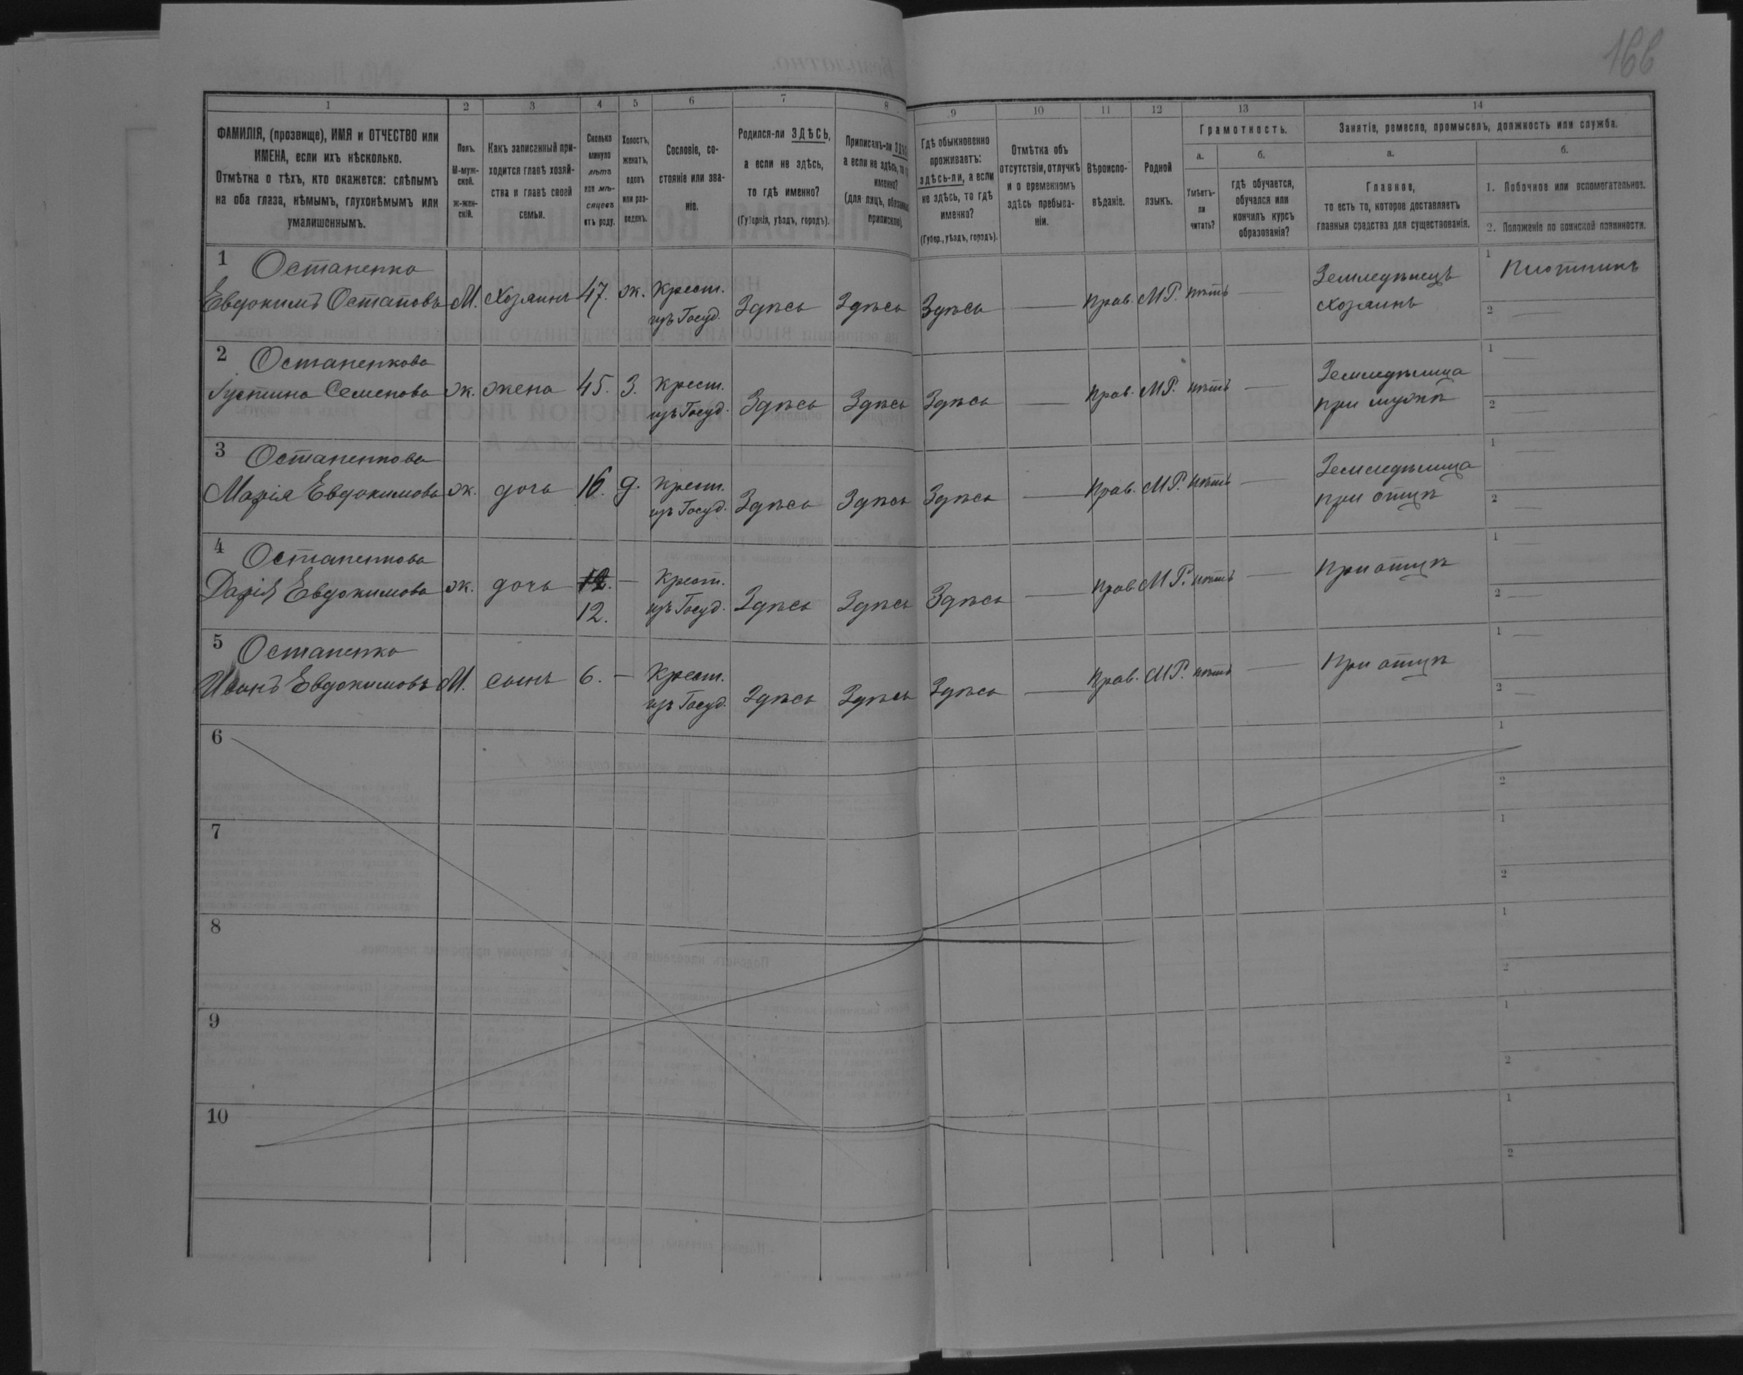 166
1 2 3 4 5 6 7 8 9 10 11 12 13 14
ФАМИЛІЯ, (прозвище), ИМЯ и ОТЧЕСТВО или ИМЕНА, если ихъ нѣсколько.
Отмѣтка о тѣхъ, кто окажется: слѣпымъ на оба глаза, нѣмымъ, глухонѣмымъ или умалишеннымъ.
Полъ. М-мужской. Ж-женскій.
Какъ записанный приходится главѣ хозяйства и главѣ своей семьи.
Сколько минуло лѣтъ или мѣсяцевъ отъ роду.
Холостъ, женатъ, вдовъ или разведенъ.
Сословіе, состояніе или званіе.
Родился-ли ЗДѢСЬ, а если не здѣсь, то гдѣ именно?
(Губернія, уѣздъ, городъ).
Приписанъ-ли
а если не здѣсь, то
именно?
(для лицъ,
Гдѣ обыкновенно проживаетъ: здѣсь-ли, а если не здѣсь, то гдѣ именно?
(Губер., уѣздъ, городъ).
Отмѣтка объ отсутствіи, отлучкѣ и о временномъ здѣсь пребываніи.
Вѣроисповѣданіе.
Родной языкъ.
Грамотность.
а.
Умѣетъ-ли читать?
б.
гдѣ обучается, обучался или кончилъ курсъ образованія?
Занятіе, ремесло, промыселъ, должность или служба.
а.
Главное,
то есть то, которое доставляетъ главныя средства для существованія.
б.
1. Побочное или вспомогательное.
2. Положеніе по воинской повинности.
1 Остапенко
Евдокимъ Остаповъ М. Хозяинъ 47. ж. Крест. изъ Госуд. Здѣсь Здѣсь Здѣсь — Прав. М.Р. нѣтъ — Земледѣлецъ хозяинъ 1 Плотникъ 2 —
2 Остапенкова
Іустина Семенова ж. жена 45. З. Крест. изъ Госуд. Здѣсь Здѣсь Здѣсь — Прав. М.Р. нѣтъ — Земледѣлица при мужѣ 1 — 2 —
3 Остапенкова
Марія Евдокимова ж. дочь 16. д. Крест. изъ Госуд. Здѣсь Здѣсь Здѣсь — Прав. М.Р. нѣтъ — Земледѣлица при отцѣ 1 — 2 —
4 Остапенкова
Дарія Евдокимова ж. дочь 12. — Крест. изъ Госуд. Здѣсь Здѣсь Здѣсь — Прав. М.Р. нѣтъ — При отцѣ 1 — 2 —
5 Остапенко
Иванъ Евдокимовъ М. сынъ 6. — Крест. изъ Госуд. Здѣсь Здѣсь Здѣсь — Прав. М.Р. нѣтъ — При отцѣ 1 — 2 —
6 1 2
7 1 2
8 1 2
9 1 2
10 1 2